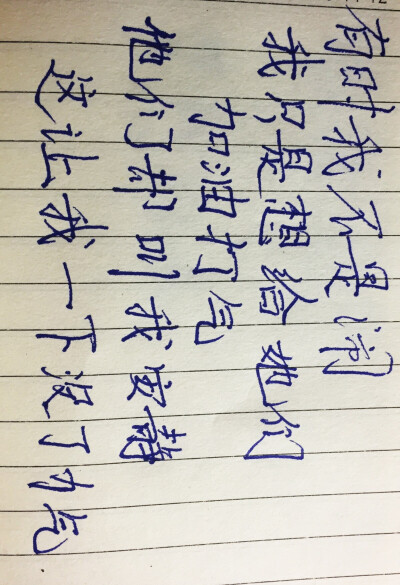 有时我不是闹
我只是想给他们
加油打气
他们却叫我安静
这让我一下没了力气